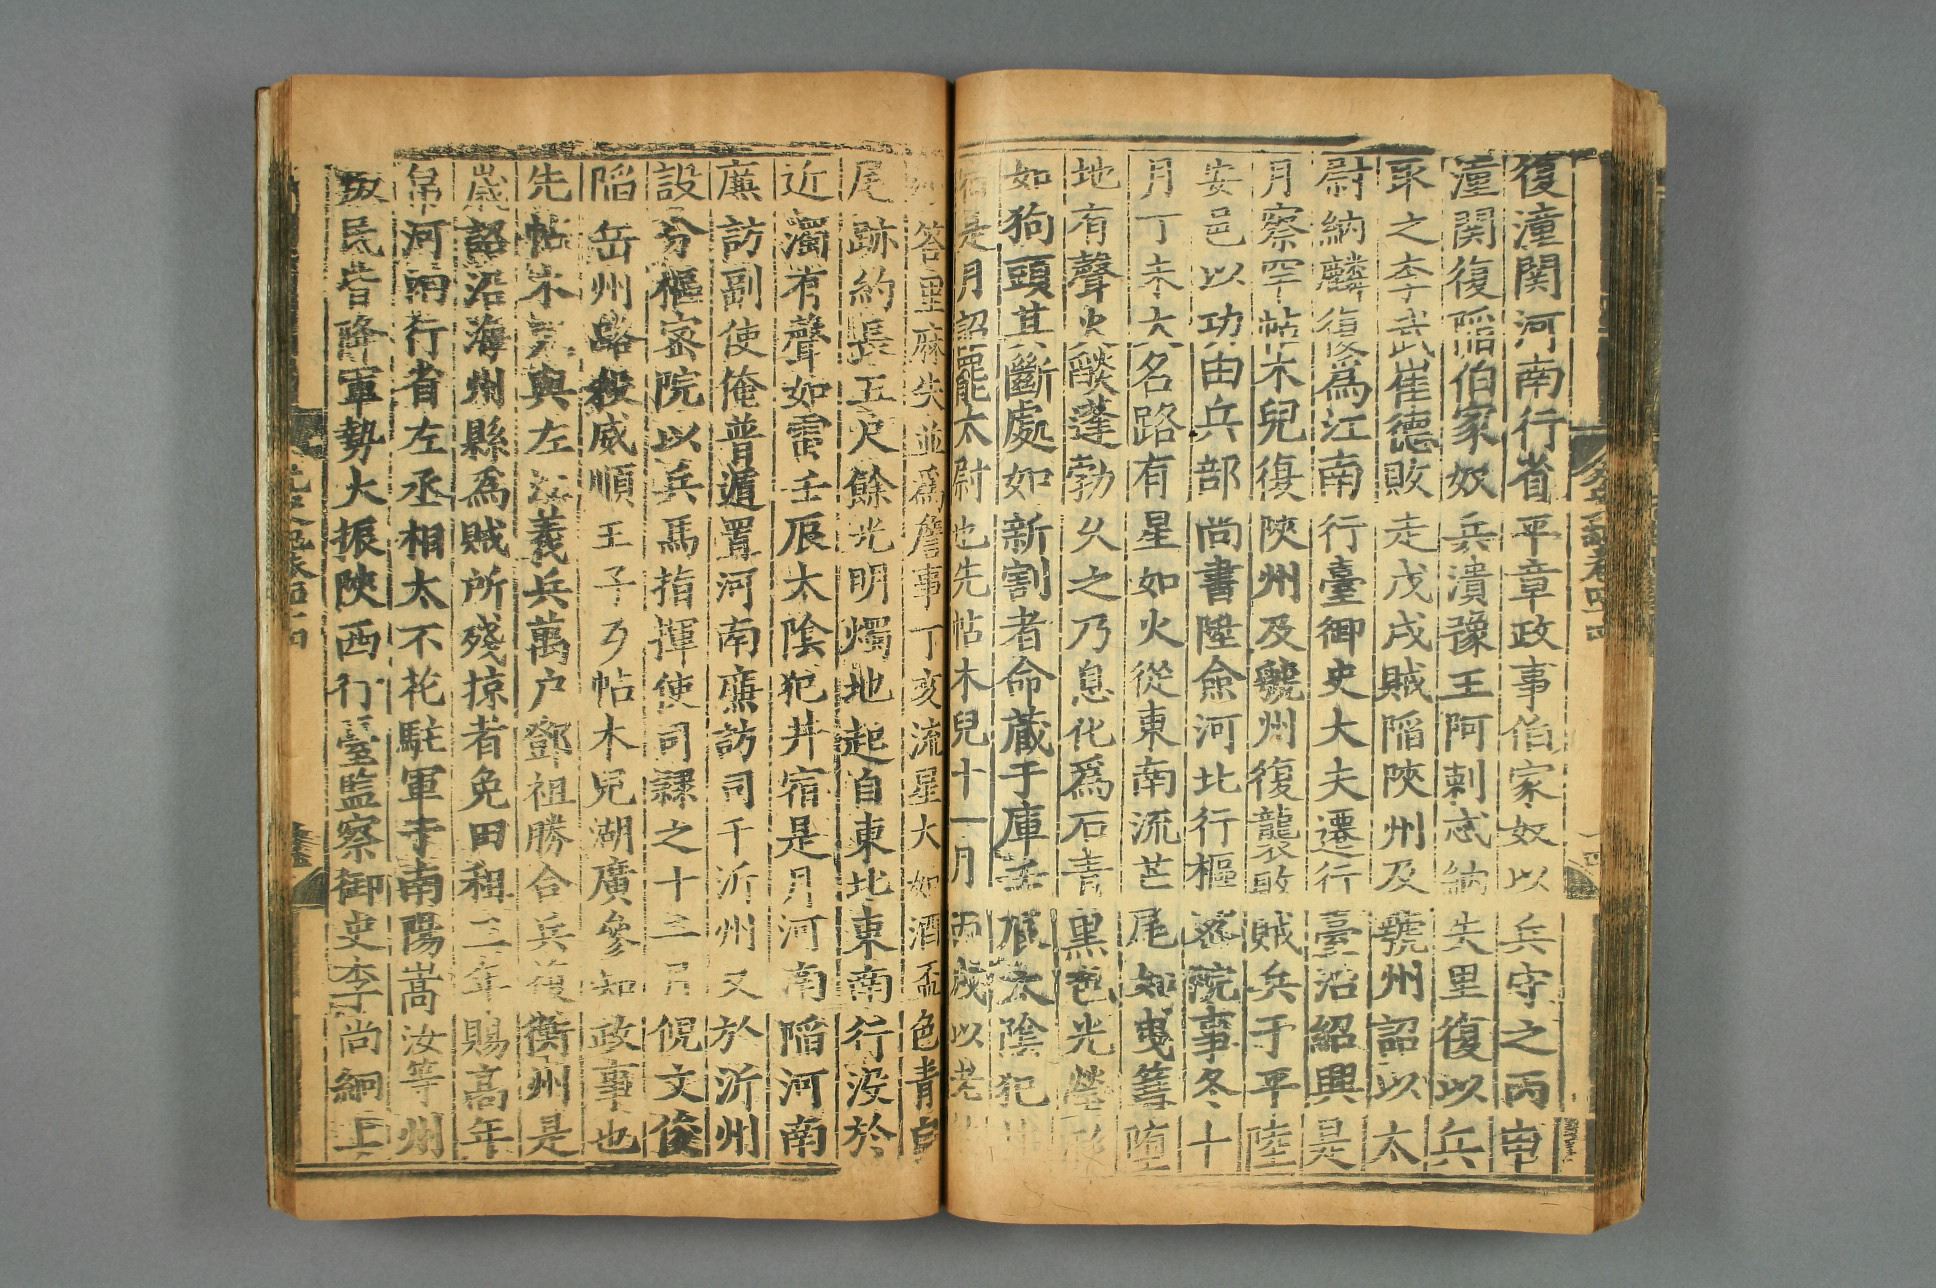 復潼関河南行省平章政事伯家奴以兵守之丙申
潼関復陷伯家奴兵潰豫王阿剌忒納失里復以兵
取之李武崔德敗走戊戌賊陷陝州及虢州詔以太
尉納麟復爲江南行臺御史大夫遷行臺治紹興是
月察罕帖木兒復陝州及虢州復襲敗賊兵于平陸
安邑以功由兵部尚書陞僉河北行樞密院事冬十
月丁未大名路有星如火從東南流芒尾如曳篲墮
地有聲火燄蓬勃久之乃息化爲石青黑色光瑩形
如狗頭其斷處如新割者命蔵于庫壬辰太陰犯井
宿是月詔罷太尉也先帖木兒十一月丙戌以老的
答里麻失並爲詹事丁亥流星大如酒盃色青白
尾跡約長五尺餘光明燭地起自東北東南行没於
近濁有聲如雷壬辰太陰犯井宿是月河南陷河南
廉訪副使俺普遁置河南廉訪司于沂州又於沂州
設分樞密院以兵馬指揮使司隸之十二月倪文俊
陷岳州路殺威順王子歹帖木兒湖廣參知政事也
先帖木兒與左江義兵萬户鄧祖勝合兵復衡州是
歳詔沿海州縣爲賊所殘掠者免田租三年賜高年
帛河南行省左丞相太不花駐軍于南陽嵩汝等州
叛民皆降軍勢大振陝西行臺監察御史李尚絅上
元史卷四十四